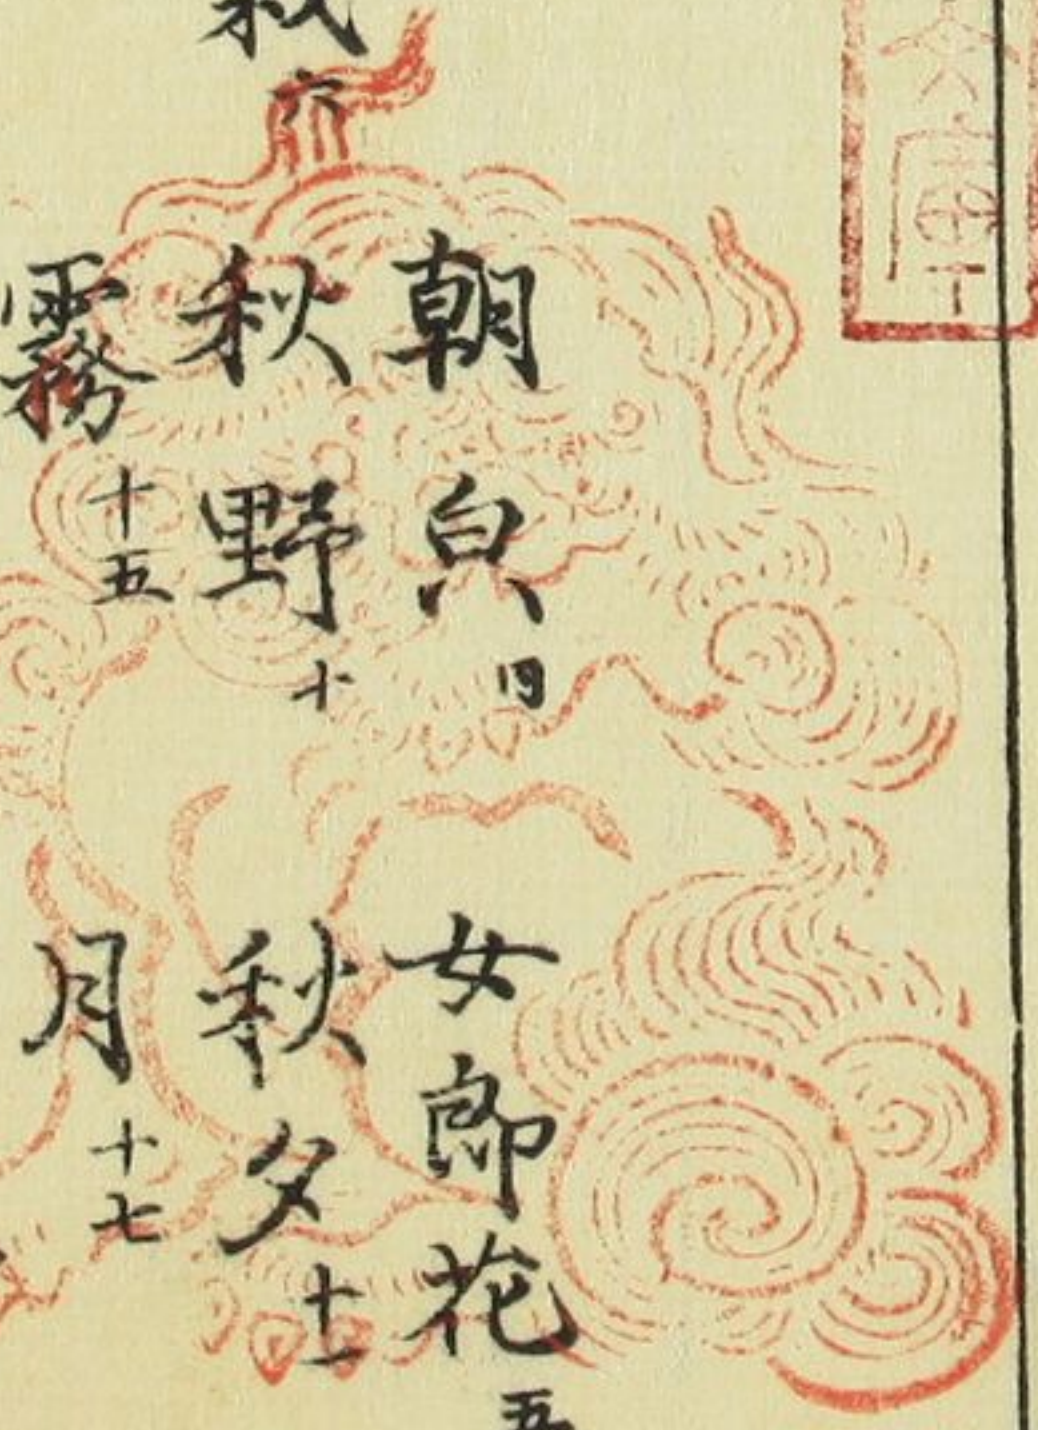 朝㒵 四
女郎花 五
六
秋野 十
秋夕 十一
霧 十五
月 十七